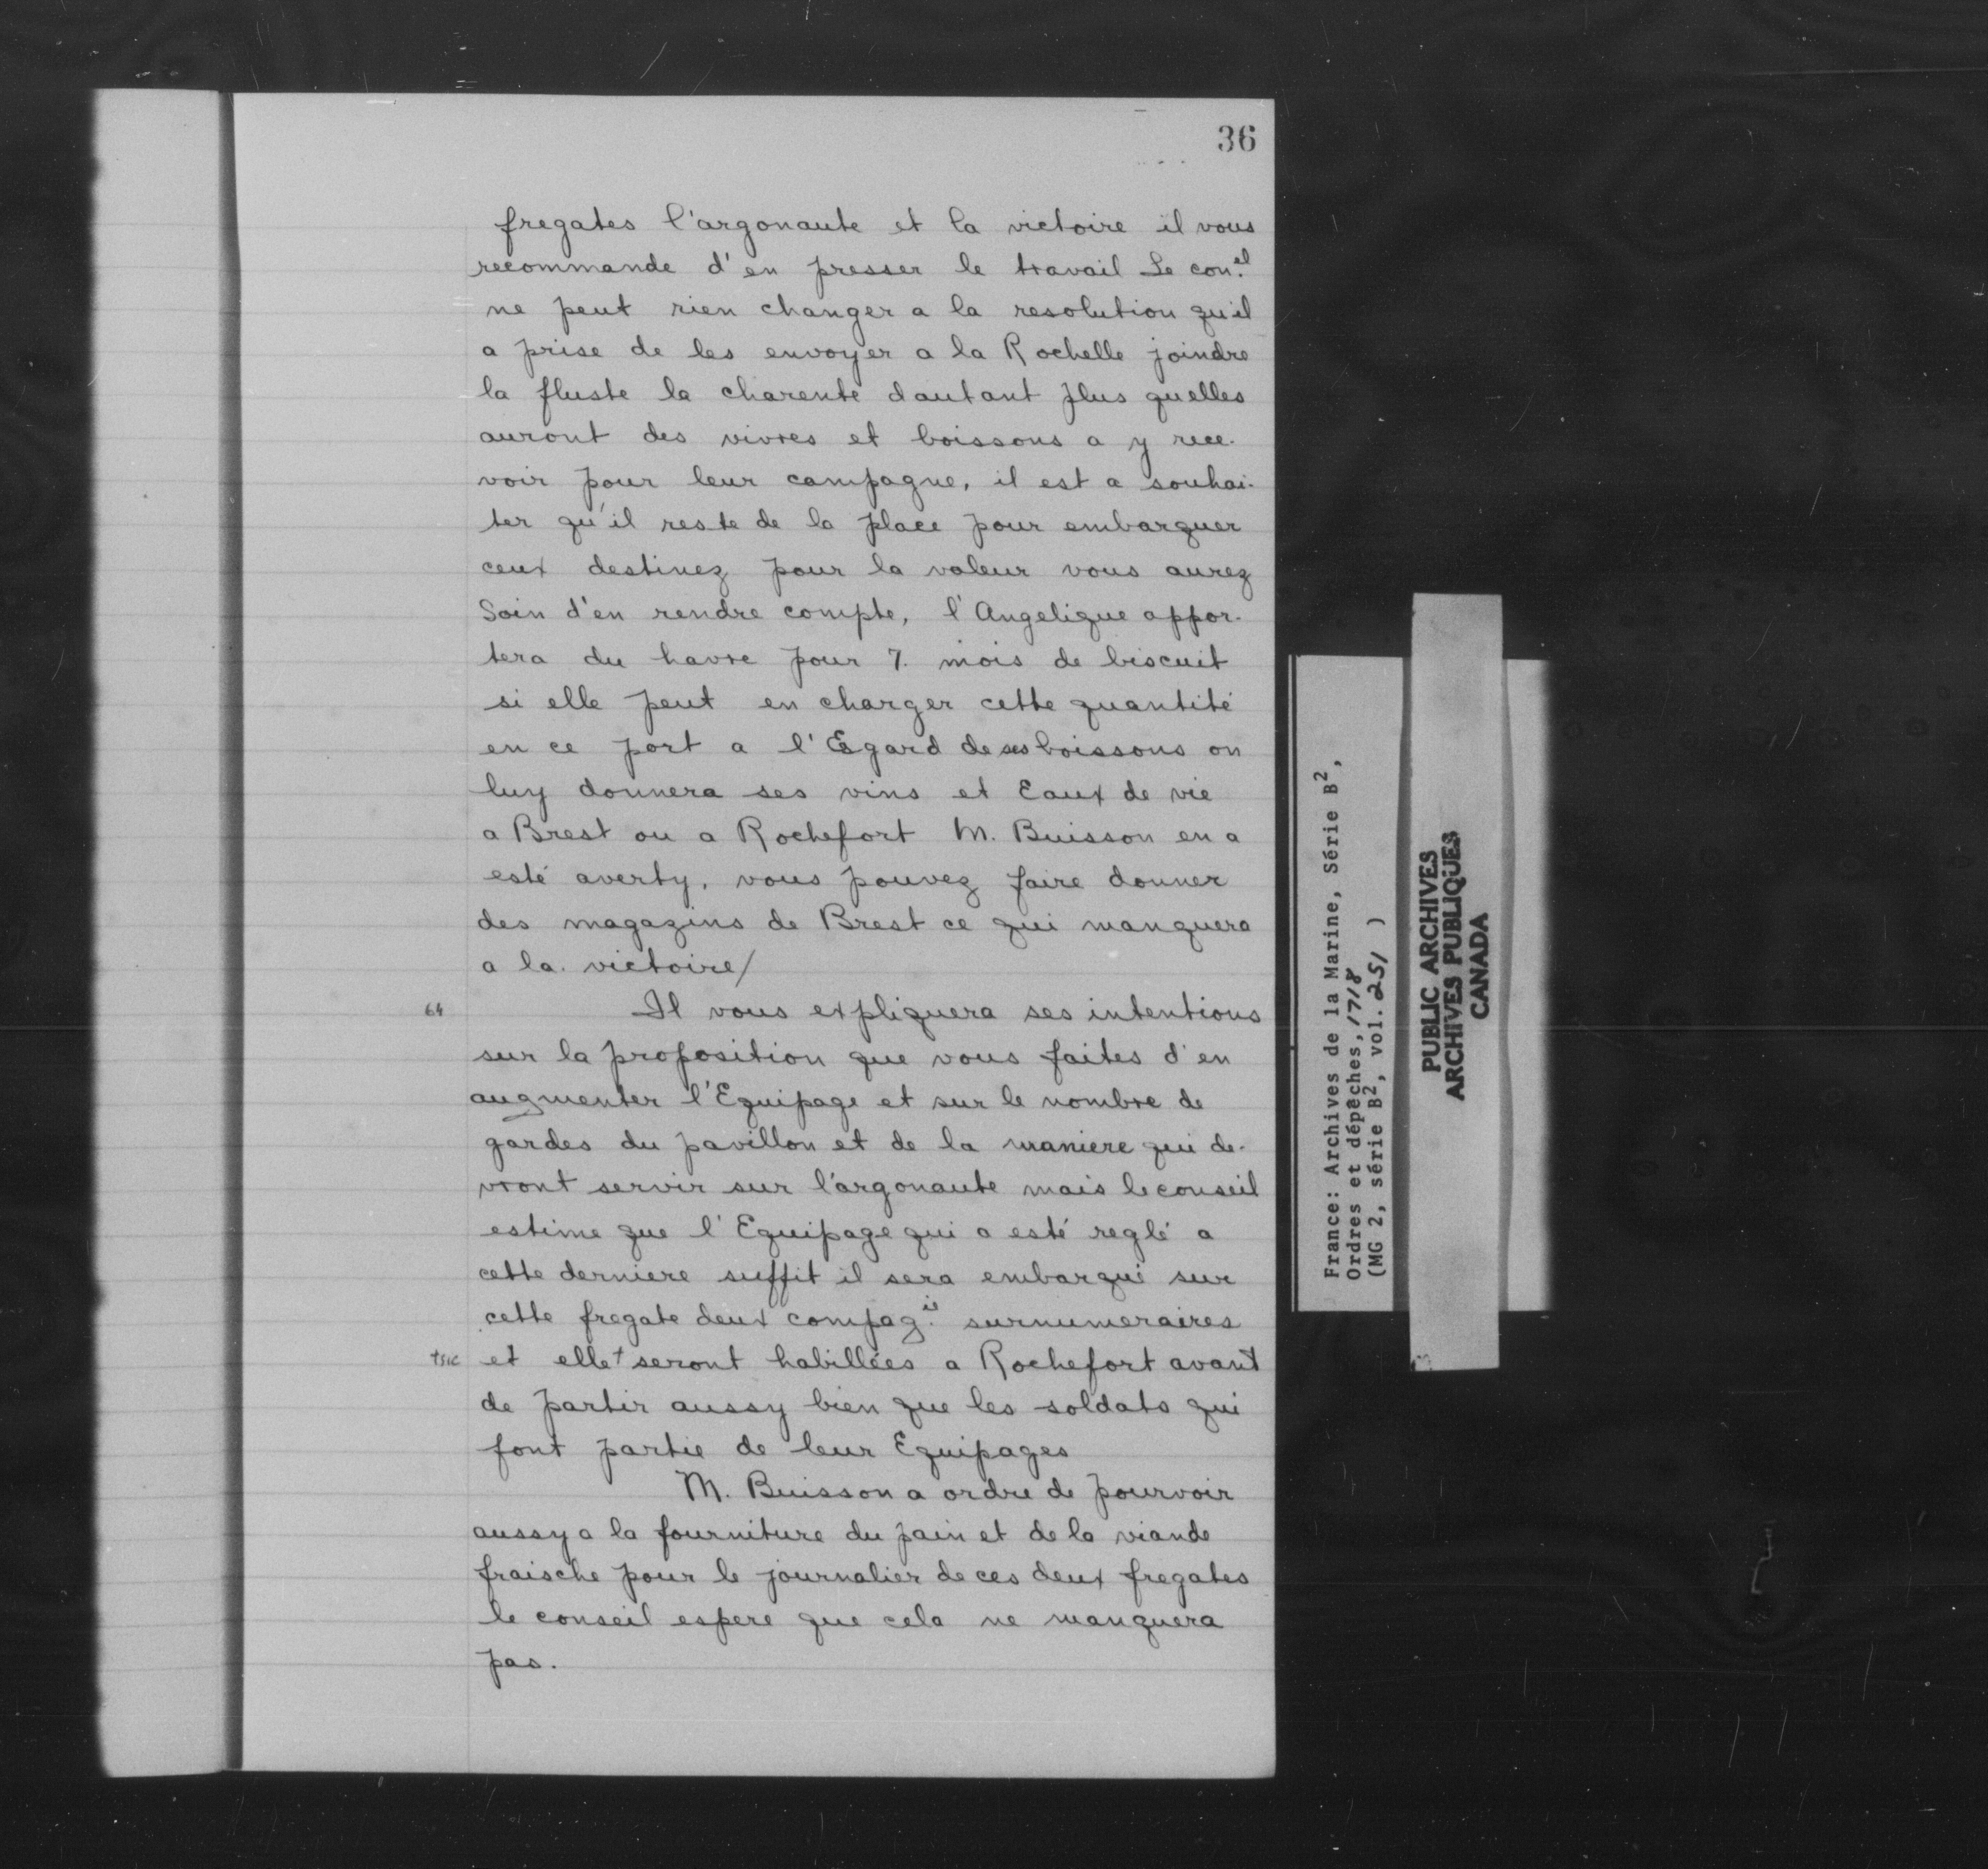 36
fregates l'argonaute et la victoire il vous
recommande d'en presser le travail Le con.el
ne peut rien changer a la resolution qu'il
a prise de les envoyer a la Rochelle joindre
la fluste la charente dautant plus quelles
auront des vivres et boissons a y rece-
voir pour leur campagne, il est a souhai-
ter qu'il reste de la place pour embarquer
ceux destinez pour la valeur vous aurez
Soin d'en rendre compte, l'Angelique appor-
tera du havre pour 7. mois de biscuit
si elle peut en charger cette quantité
en ce port a l'Egard de ses boissons on
luy donnera ses vins et Eaux de vie
a Brest ou a Rochefort M. Buisson en a
esté averty, vous pouvez faire donner
des magazins de Brest ce qui manquera
a la victoire/
64 Il vous expliquera ses intentions
sur la proposition que vous faites d'en
augmenter l'Equipage et sur le nombre de
gardes du pavillon et de la maniere qui de-
vront servir sur l'argonaute mais le conseil
estime que l'Equipage qui a esté reglé a
cette derniere suffit il sera embarqué sur
cette fregate deux compag.is surnumeraires
+sic et elle+ seront habillées a Rochefort avant
de partir aussy bien que les soldats qui
font partie de leur Equipages
M. Buisson a ordre de pourvoir
aussy a la fourniture du pain et de la viande
fraische pour le journalier de ces deux fregates
le conseil espere que cela ne manquera
pas.
France: Archives de la Marine, Série B2,
Ordres et dépêches, 1718
(MG 2, série B2, vol. 251 )
PUBLIC ARCHIVES
ARCHIVES PUBLIQUES
CANADA